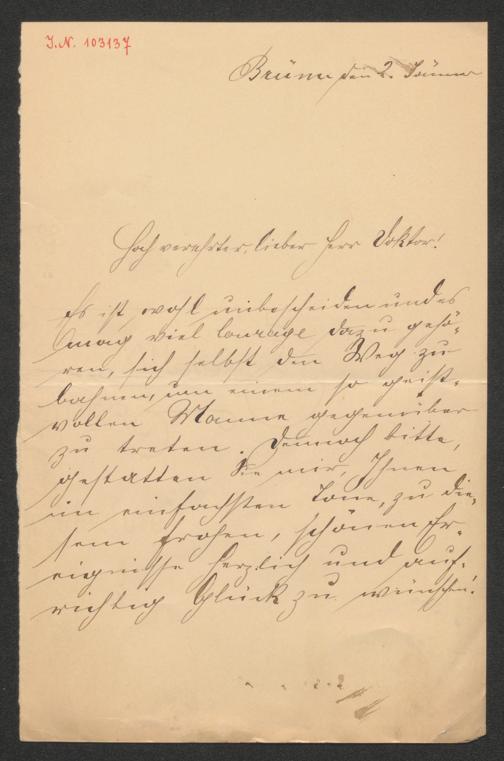 J.N. 103137
Brünn den 2. Jänner
Hoch verehrter, lieber Herr Doktor!
Es ist wohl unbescheiden und es
mag viel Courage dazu gehö-
ren, sich selbst den Weg zu
bahnen, um einem so geist-
vollen Manne gegenüber
zu treten. Dennoch bitte,
gestatten Sie mir, Ihnen
im einfachsten Tone, zu die-
sem frohen, schönen Er-
eignisse herzlich und auf-
richtig Glück zu wünschen!